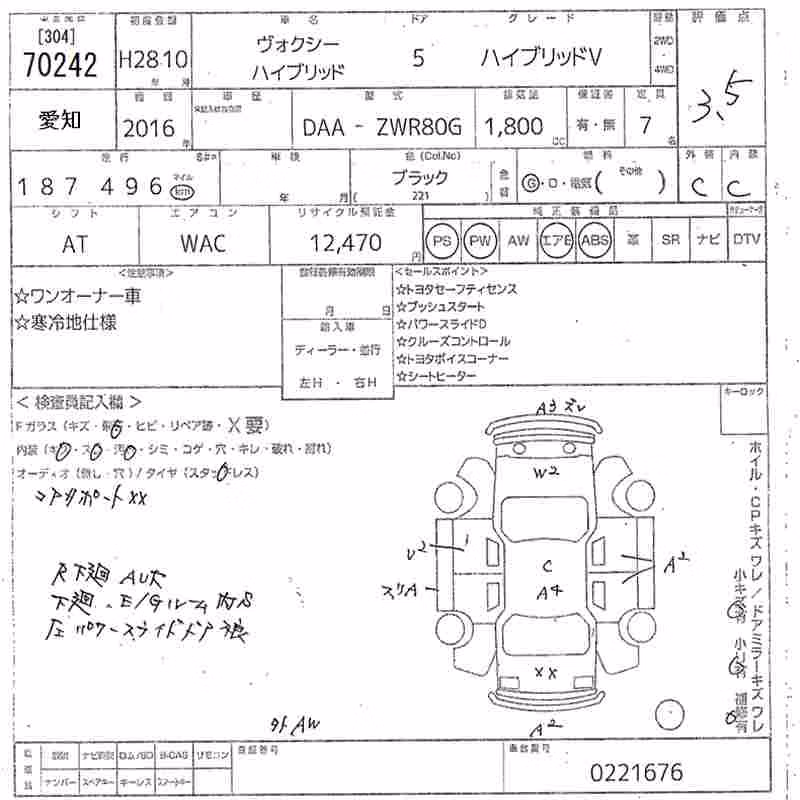 [304]
70242
初度登録
H28.10
車名
ヴォクシー
ハイブリッド
ドア
5
グレード
ハイブリッドV
2WD
4WD
評価点
3.5
愛知
2016 年
車歴
型式
DAA - ZWR80G
排気量
1,800 CC
保証書
有・無
定員
7 名
走行
187 496
マイル
km
車検
年 月
色 (Col.No)
ブラック
( 221 )
色替
燃料
G・D・電気( その他 )
外装
C
内装
C
シフト
AT
エアコン
WAC
リサイクル預託金
12,470 円
純正装備品
PS PW AW エアB ABS 革 SR ナビ DTV
<注意事項>
☆ワンオーナー車
☆寒冷地仕様
月 日
輸入車
ディーラー・並行
左H ・ 右H
<セールスポイント>
☆トヨタセーフティセンス
☆プッシュスタート
☆パワースライドD
☆クルーズコントロール
☆トヨタボイスコーナー
☆シートヒーター
キーロック
< 検査員記入欄 >
Fガラス (キズ・飛石・ヒビ・リペア跡・X要)
内装 (キズ・スレ・汚れ・シミ・コゲ・穴・キレ・破れ・割れ)
オーディオ (無し・穴) / タイヤ (スタッドレス)
コアサポートXX
下廻 E/Gルーム内S
左パワースライドドア
外AW
A3
W2
U2
1
A2
C
A4
スリA
XX
A2
ホイル・CPキズワレ/ドアミラーキズワレ
小キズ有 小凹有 補修有
ナンバー スペアキー キーレス スマートキー
B-CAS リモコン
登録番号
車台番号
0221676